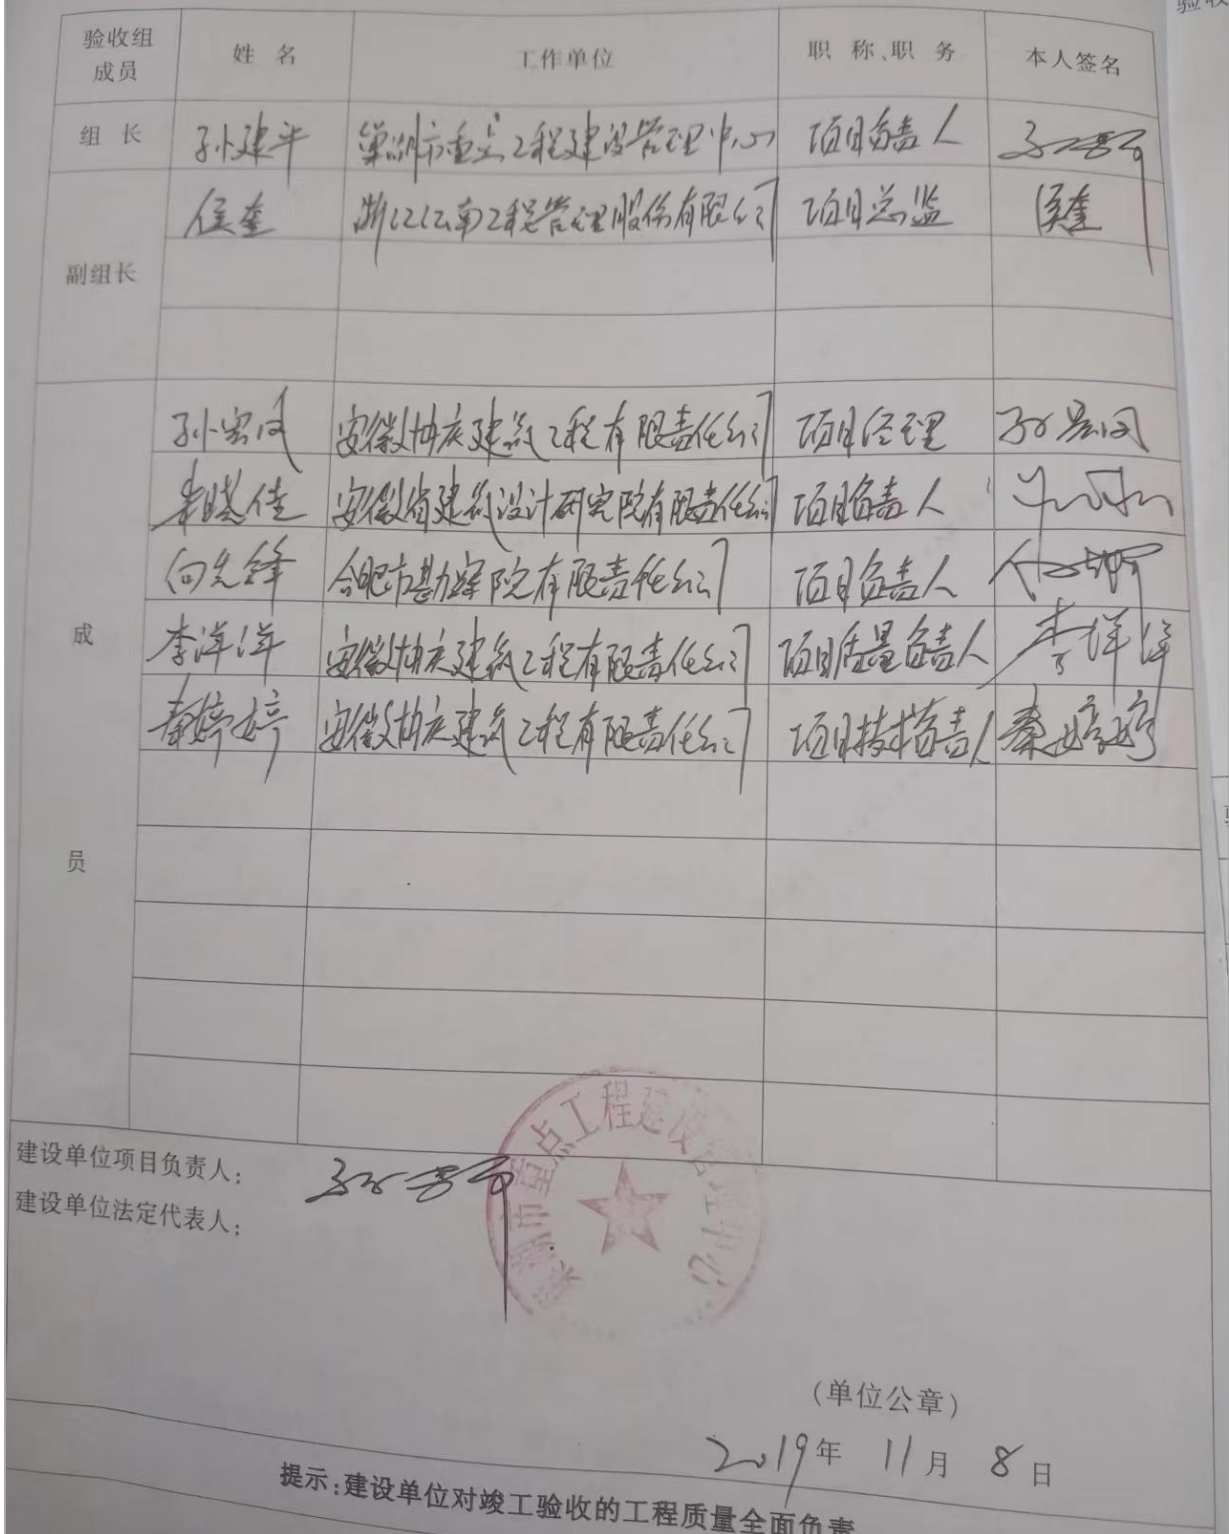 验收
验收组成员 姓 名 工作单位 职 称、职 务 本人签名
组 长 孙建平 巢湖市重点工程建设管理中心 项目负责人
副组长 侯奎 浙江江南工程管理股份有限公司 项目总监 侯奎
成员
孙宏凤 安徽坤庆建筑工程有限责任公司 项目经理 孙宏凤
朱晓佳 安徽省建筑设计研究院有限责任公司 项目负责人
向先锋 合肥市勘察院有限责任公司 项目负责人
李洋洋 安徽坤庆建筑工程有限责任公司 项目质量负责人 李洋洋
秦婷婷 安徽坤庆建筑工程有限责任公司 项目技术负责人 秦婷婷
建设单位项目负责人:
建设单位法定代表人:
巢湖市重点工程建设管理中心
(单位公章)
2019年 11月 8日
提示:建设单位对竣工验收的工程质量全面负责